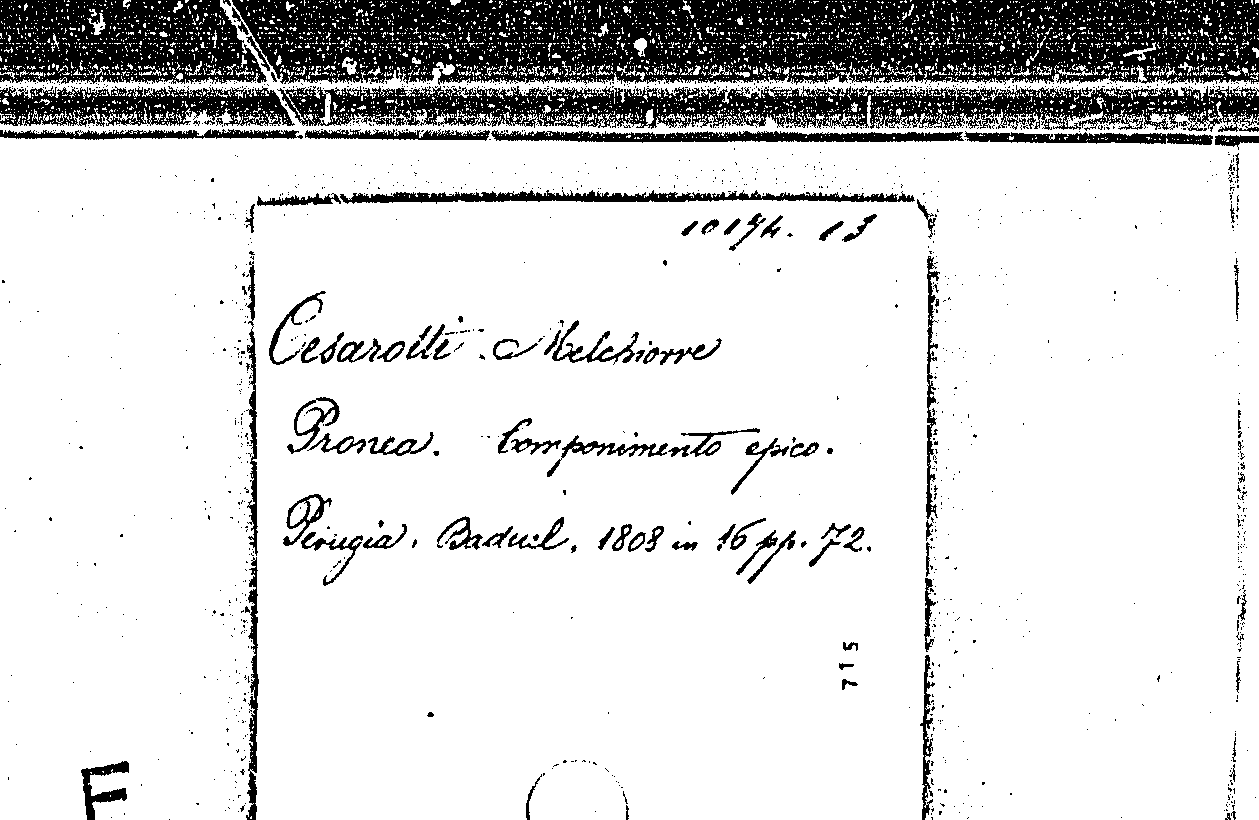 10174. 13
Cesarotti. Melchiorre
Pronea. Componimento epico.
Perugia, Baduel, 1808 in 16 pp. 72.
715
F